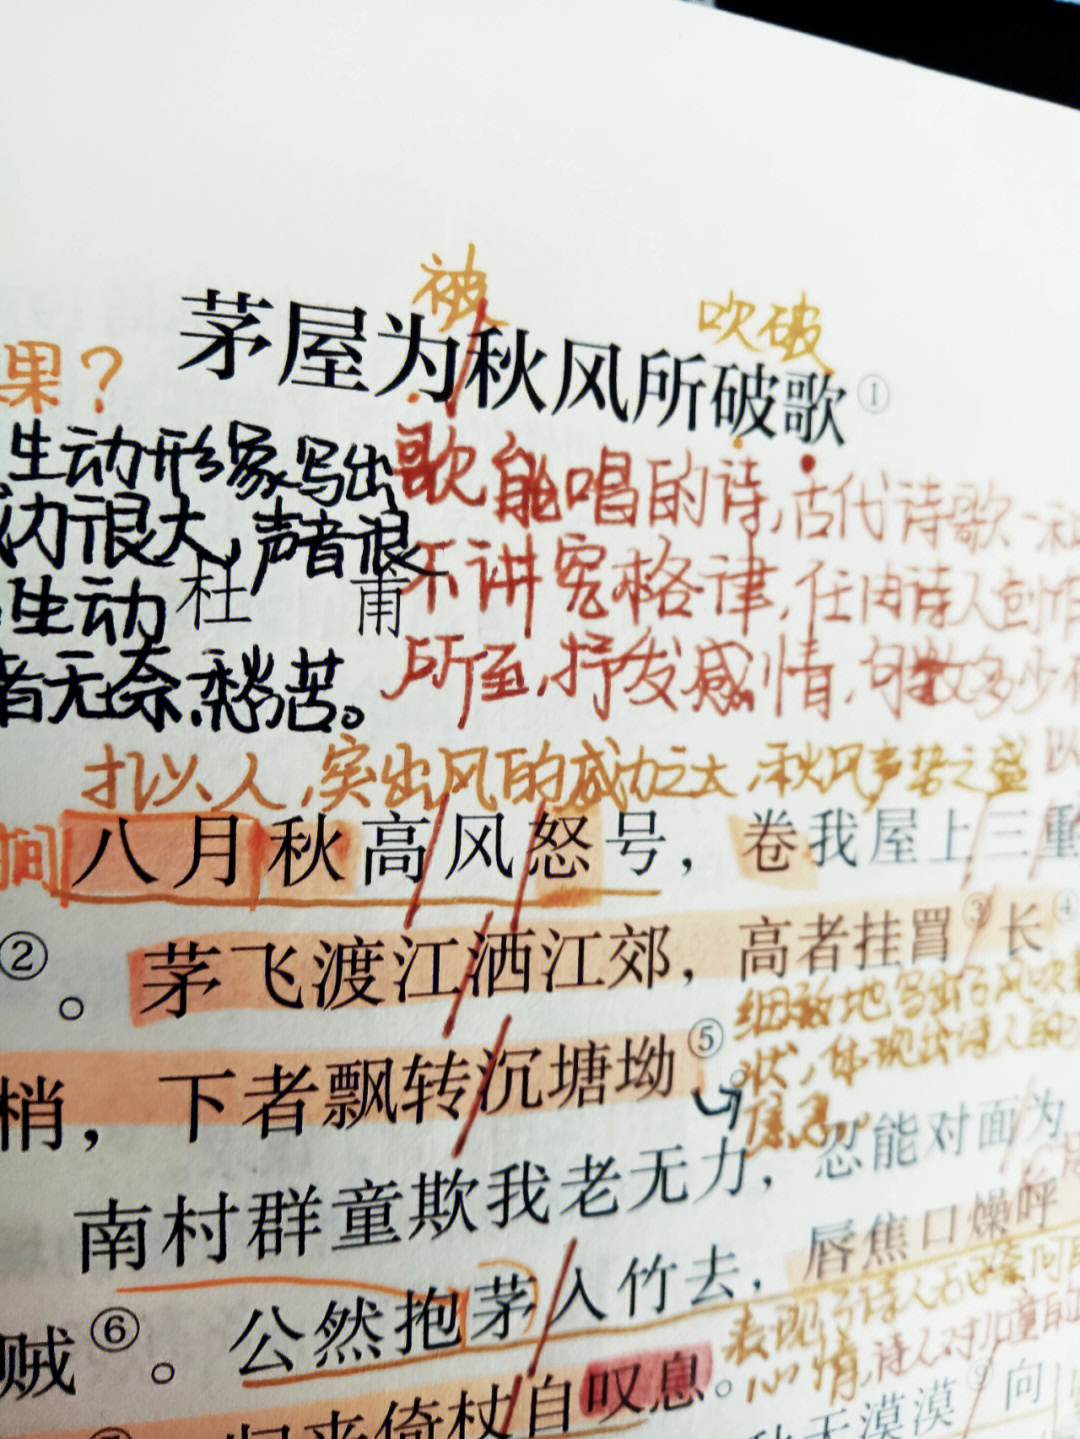 被
吹破
茅屋为秋风所破歌①
果？
生动形象写出
歌能唱的诗，古代诗歌一种
力很大，声音很
不讲究格律，任由诗人创作
生动
杜甫
所至，抒发感情，句数多少
者无奈，愁苦。
以
扎以人，突出风的威力之大，秋风声势之盛
间
八月秋高风怒号，卷我屋上三重
②。茅飞渡江洒江郊，高者挂罥③长④
细致地写出了风吹
梢，下者飘转沉塘坳⑤。
状，体现出诗人的
焦急。
南村群童欺我老无力，忍能对面为
贼⑥。公然抱茅入竹去，唇焦口燥呼
表现了诗人无可奈何的
归来倚杖自叹息。
心情，诗人对儿童的
秋天漠漠⑨向